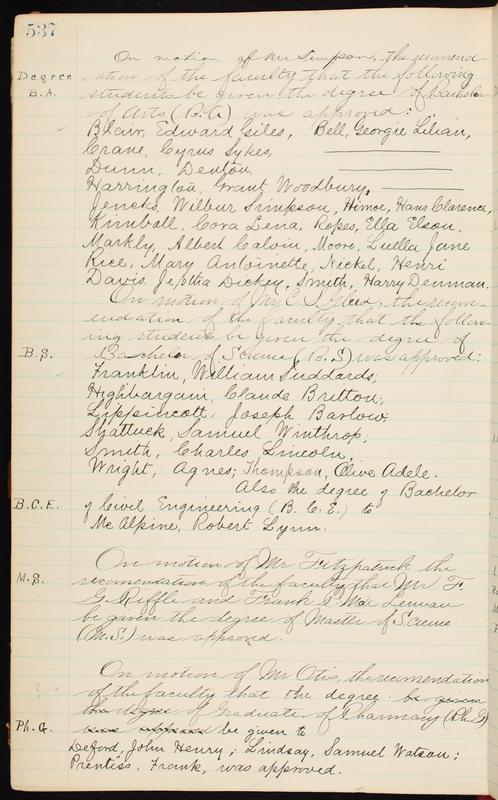 537
On motion of Mr Simpson, the recomend-
Degree
B.A.
ation of the faculty that the following
students be given the degree of Bachelor
of Arts (B.A) was approved:
Blair, Edward Giles, Bell, Georgie Lilian,
Crane, Cyrus Sykes,
Dunn, Denton,
Harrington, Grant Woodbury,
Jencks, Wilbur Simpson, Himoe, Hans Clarence,
Kimball, Cora Lena, Ropes, Ella Elson,
Markly, Albert Calvin, Moore, Luella Jane
Rice, Mary Antoinette, Nickel, Henri
Davis, Jeptha Dickey, Smith, Harry Denman.
On motion of Mr. C. S. Gleed, the recom-
endation of the faculty that the follow-
ing students be given the degree of
B.S.
Bachelor of Science (B.S) was approved:
Franklin, William Suddards,
Highbargain, Claude Britton;
Lippincott, Joseph Barlow;
Shattuck, Samuel Winthrop;
Smith, Charles, Lincoln;
Wright, Agnes; Thompson, Olive Adele.
Also the degree of Bachelor
B.C.E.
of Civil Engineering (B. C. E.) to
McAlpine, Robert Lynn.
On motion of Mr Fitzpatrick the
M.S.
recomendation of the faculty that Mr F.
G. Riffle and Frank
be given the degree of Master of Science
(M.S.) was approved.
On motion of Mr Otis, the recomendation
of the faculty that the degree be given
the degree of Graduate of Pharmacy (Ph.G)
Ph.G.
was approved be given to
Deford, John Henry; Lindsay, Samuel Watson;
Prentiss, Frank, was approved.